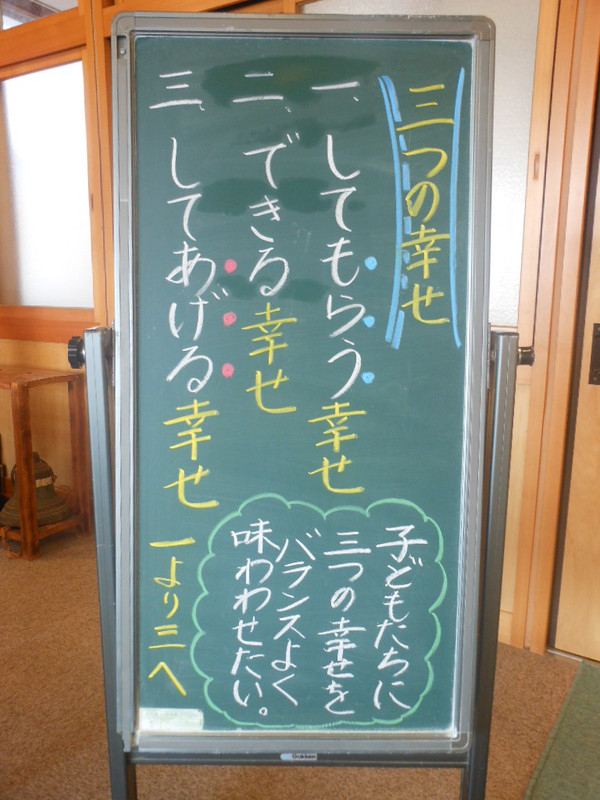 三つの幸せ
一、してもらう幸せ
二、できる幸せ
三、してあげる幸せ
一より三へ
子どもたちに
三つの幸せを
バランスよく
味わわせたい。
Gakken